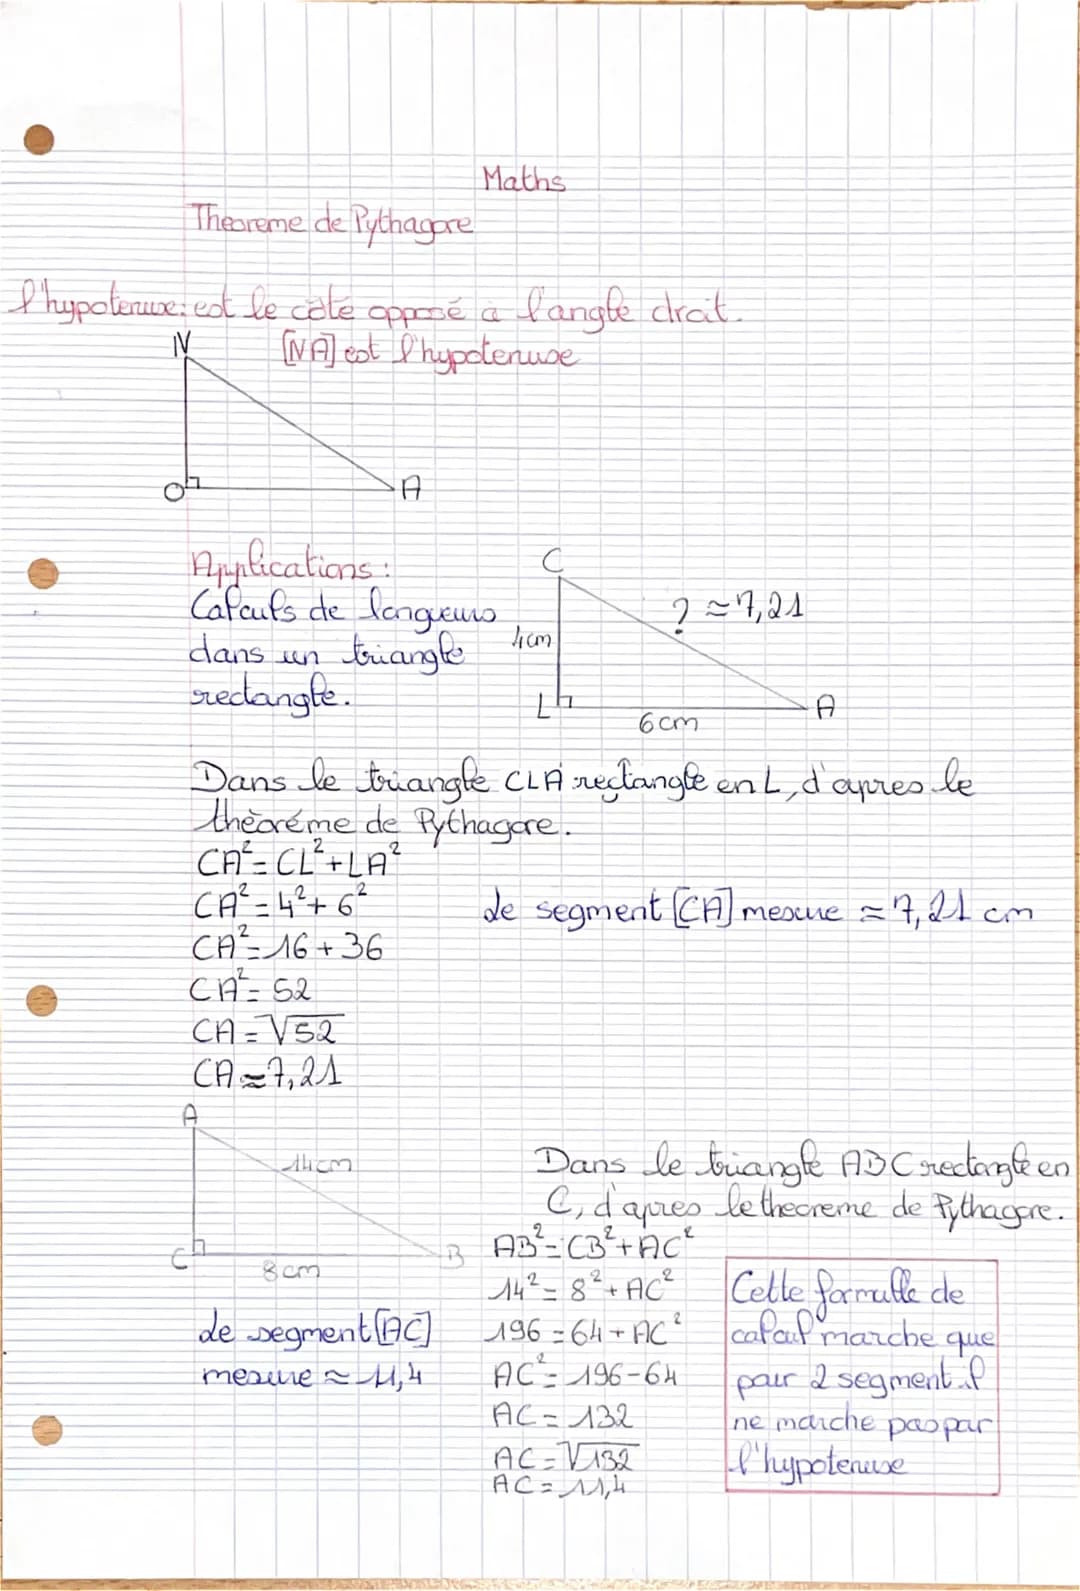 Maths
Theoreme de Pythagore
l'hypotenuse: est le côté opposé à l'angle droit.
N
[NA] est l'hypotenuse
O
A
Applications:
Calculs de longueurs
dans un triangle
rectangle.
C
? ≈ 7,21
4cm
L
6cm
A
Dans le triangle CLA rectangle en L, d'apres le
thèoréme de Pythagore.
CA² = CL² + LA²
CA² = 4² + 6²
CA² = 16 + 36
CA² = 52
CA = √52
CA ≈ 7,21
Le segment [CA] mesure ≈ 7,21 cm
A
14cm
C
8cm
B
Le segment [AC]
mesure ≈ 11,4
Dans le triangle ABC rectangle en
C, d'apres le theoreme de Pythagore.
AB² = CB² + AC²
14² = 8² + AC²
196 = 64 + AC²
AC² = 196-64
AC = 132
AC = √132
AC = 11,4
Cette formulle de
calcul marche que
pour 2 segment il
ne marche pas par
l'hypotenuse